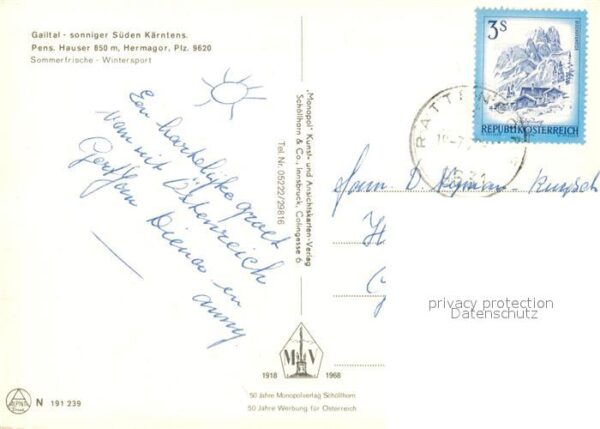 Gailtal - sonniger Süden Kärntens.
Pens. Hauser 850 m, Hermagor, Plz. 9620
Sommerfrische - Wintersport
Een hartelijke groet
van uit Östenreich
Dienao en
anny
"Monopol" Kunst- und Ansichtskarten-Verlag
Schöllhorn & Co., Innsbruck, Colingasse 6
Tel Nr. 05222/29816
3 S
REPUBLIK ÖSTERREICH
Fam. D.
privacy protection
Datenschutz
M V
1918 1968
50 Jahre Monopolverlag Schöllhorn
50 Jahre Werbung für Österreich
ALPINA
Druck
N 191 239